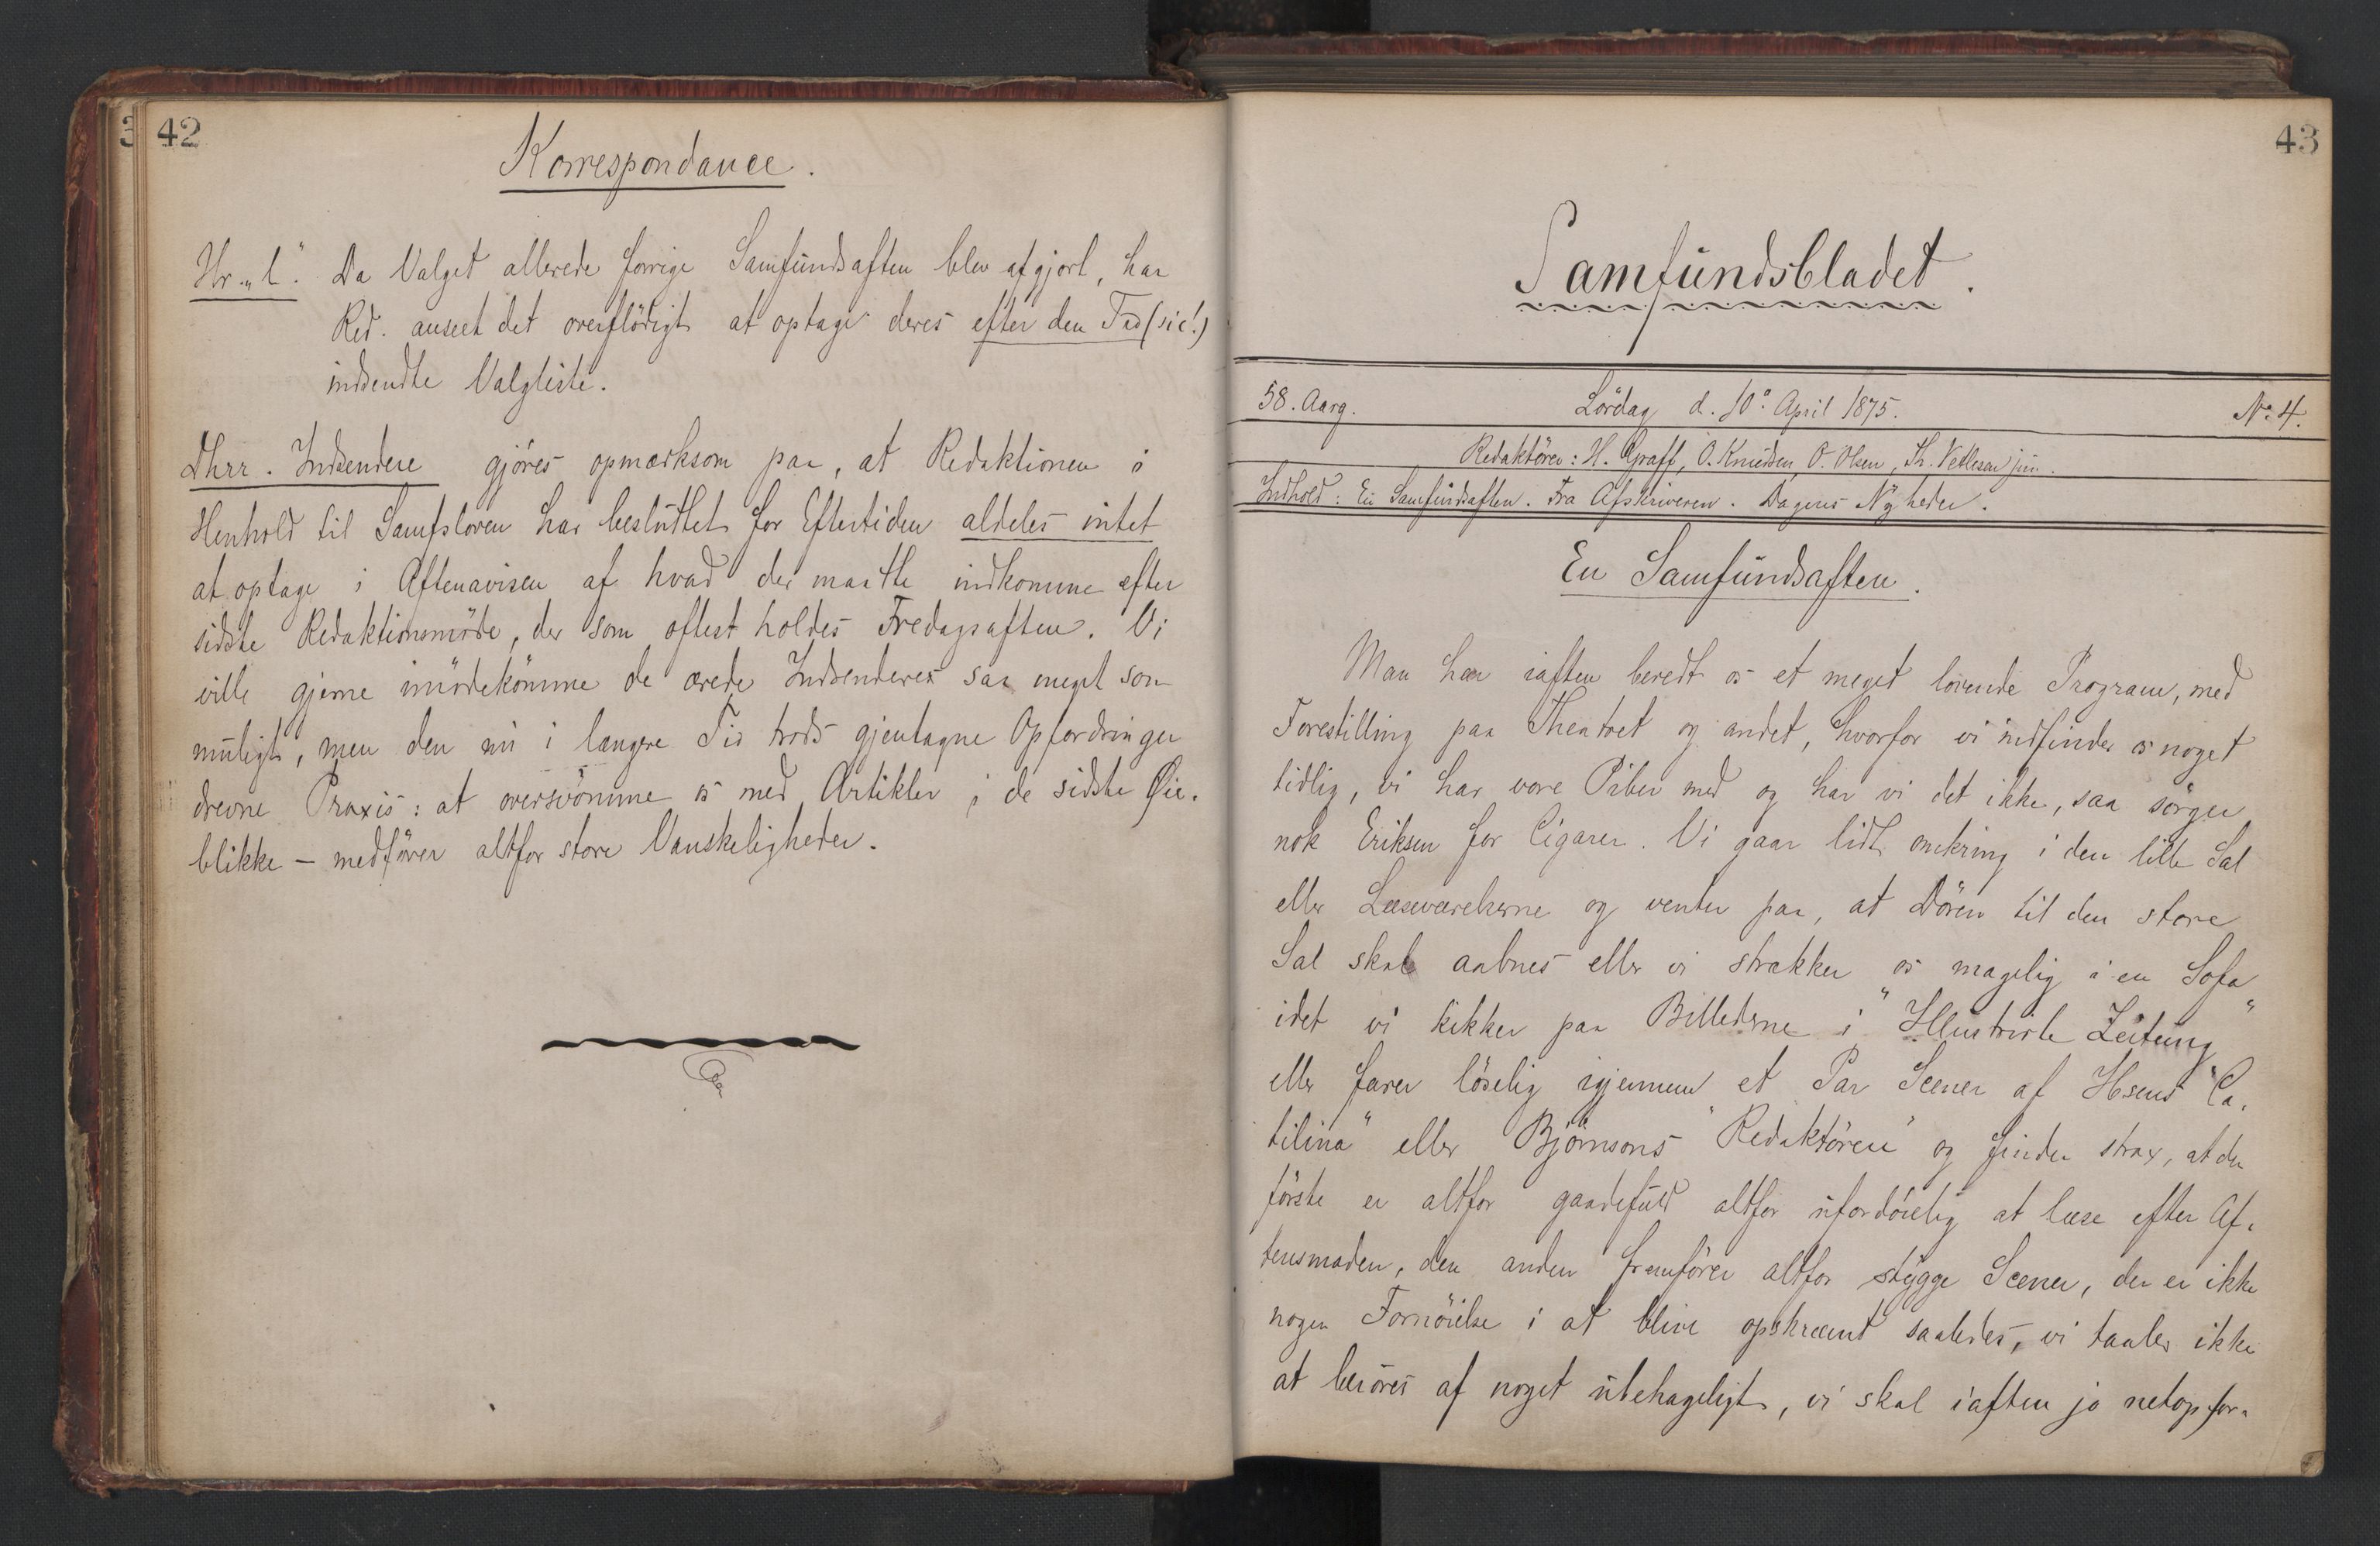 42
Korrespondance.
Hr. „l“. Da Valget allerede forrige Samfundsaften blev afgjort, har
Red. anseet det overflödigt at optage deres efter den Tid (sic!)
indsendte Valgliste.
Dhrr. Indsendere gjöres opmærksom paa, at Redaktionen i
Henhold til Samfsloven har besluttet for Eftertiden aldeles intet
at optage i Aftenavisen af hvad der maatte indkomme efter
sidste Redaktionsmöde, der som oftest holdes Fredagsaften. Vi
ville gjerne imödekomme de ærede Indsendere saa meget som
muligt, men den nu i længere Tid trods gjentagne Opfordringer
drevne Praxis: at oversvömme os med Artikler i de sidste Øie-
blikke — medförer altfor store Vanskeligheder.
43
Samfundsbladet.
58. Aarg. Lördag d. 10º April 1875. No. 4.
Redaktörer: H. Graff, O. Knudsen, O. Olsen, Th. Vetlesen jun.
Indhold: En Samfundsaften. Fra Afskriveren. Dagens Nyheder.
En Samfundsaften.
Man har iaften beredt os et meget lovende Program, med
Forestilling paa Theatret og andet, hvorfor vi indfinder os noget
tidlig, vi har vore Piber med og har vi det ikke, saa sörger
nok Eriksen for Cigarer. Vi gaar lidt omkring i den lille Sal
eller Læseværelserne og venter paa, at Dören til den store
Sal skal aabnes eller vi strækker os magelig i en Sofa
idet vi kikker paa Billederne i "Illustrirte Zeitung"
eller farer löselig igjennem et Par Scener af Ibsens "Ca-
tilina" eller Björnsons "Redaktören" og finder strax, at den
förste er altfor gaadefuld altfor ufordöielig at læse efter Af-
tensmaden, den anden fremförer altfor stygge Scener, der er ikke
nogen Fornöielse i at blive opskræmt saaledes, vi taaler ikke
at beröres af noget ubehageligt, vi skal iaften jo netop for-